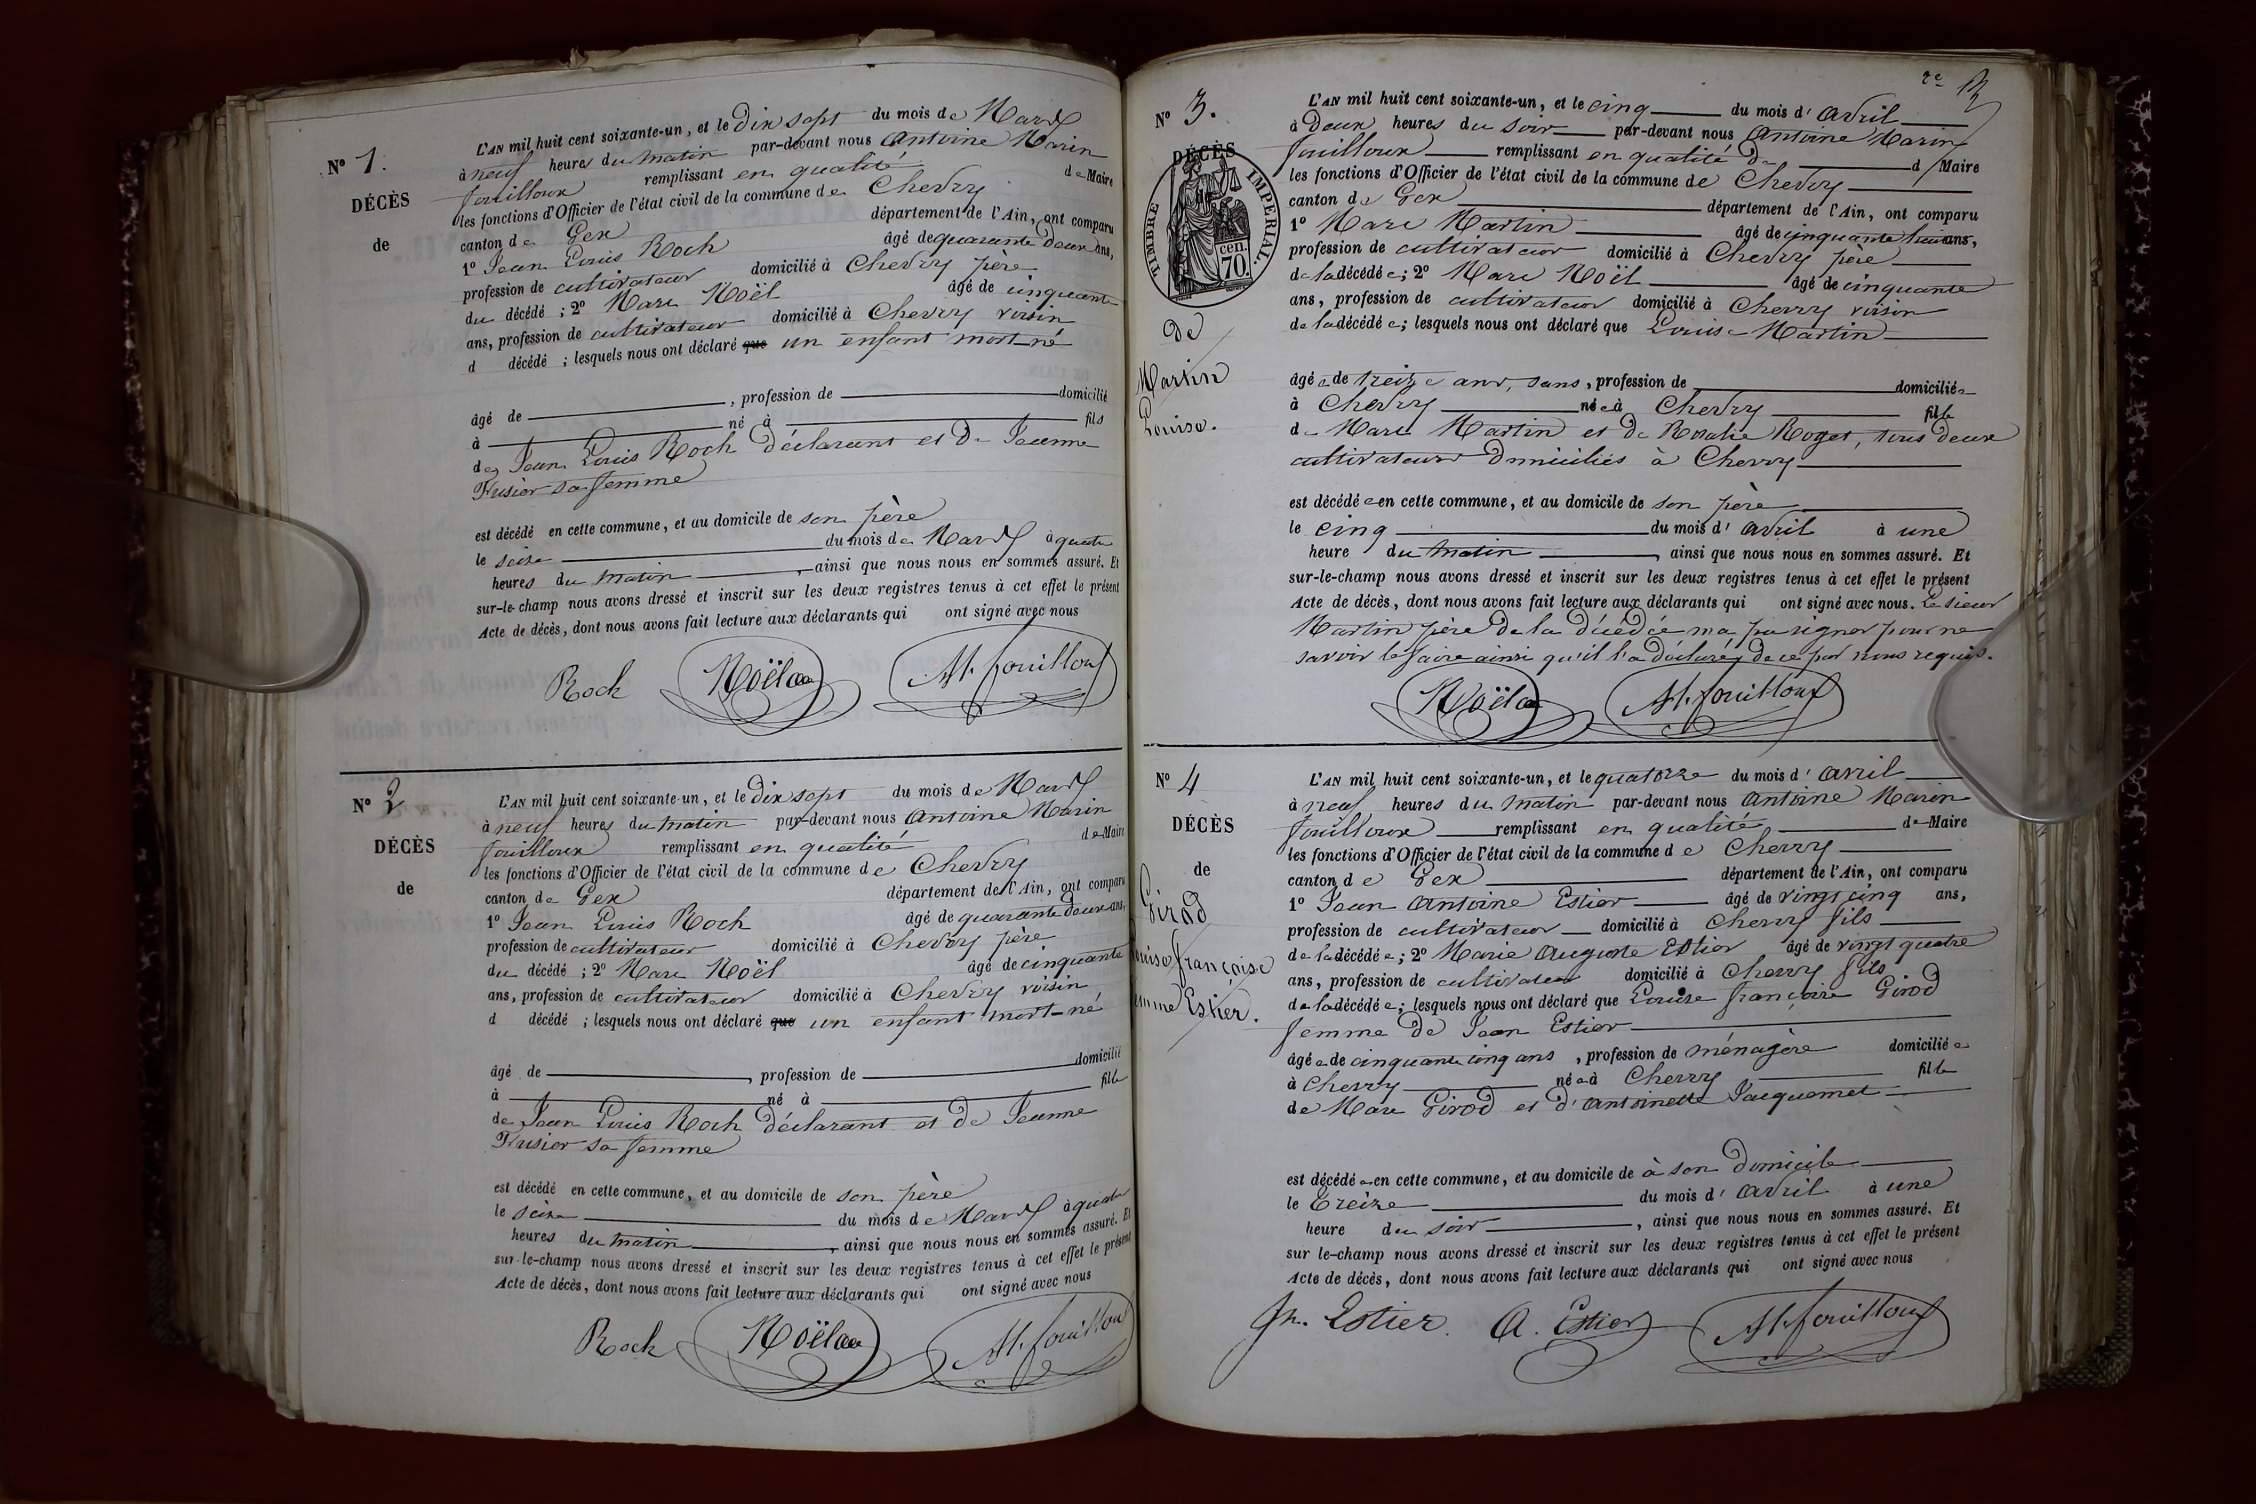 N° 1.
DÉCÈS
de
L'AN mil huit cent soixante-un, et le Dix sept du mois de Mars
à neuf heures du matin par-devant nous Antoine Marin
fouilloux remplissant en qualité de Maire
les fonctions d'Officier de l'état civil de la commune de Chevry
canton de Gex département de l'Ain, ont comparu
1° Jean Louis Roch âgé de quarante deux ans,
profession de cultivateur domicilié à Chevry père
du décédé ; 2° Marc Noël âgé de cinquante
ans, profession de cultivateur domicilié à Chevry voisin
d décédé ; lesquels nous ont déclaré que un enfant mort-né
âgé de , profession de domicilié
à né à fils
de Jean Louis Roch déclarant et de Jeanne
sa femme
est décédé en cette commune, et au domicile de son père
le seize du mois de Mars à quatre
heures du matin , ainsi que nous nous en sommes assuré. Et
sur-le-champ nous avons dressé et inscrit sur les deux registres tenus à cet effet le présent
Acte de décès, dont nous avons fait lecture aux déclarants qui ont signé avec nous
Roch Noël M. fouilloux
N° 2
DÉCÈS
de
L'AN mil huit cent soixante-un, et le Dix sept du mois de Mars
à neuf heures du matin par-devant nous Antoine Marin
fouilloux remplissant en qualité de Maire
les fonctions d'Officier de l'état civil de la commune de Chevry
canton de Gex département de l'Ain, ont comparu
1° Jean Louis Roch âgé de quarante deux ans,
profession de cultivateur domicilié à Chevry père
du décédé ; 2° Marc Noël âgé de cinquante
ans, profession de cultivateur domicilié à Chevry voisin
d décédé ; lesquels nous ont déclaré que un enfant mort-né
âgé de , profession de domicilié
à né à fille
de Jean Louis Roch déclarant et de Jeanne
sa femme
est décédé en cette commune, et au domicile de son père
le seize du mois de Mars à quatre
heures du matin , ainsi que nous nous en sommes assuré. Et
sur-le-champ nous avons dressé et inscrit sur les deux registres tenus à cet effet le présent
Acte de décès, dont nous avons fait lecture aux déclarants qui ont signé avec nous
Roch Noël M. fouilloux
2e
N° 3.
DÉCÈS
TIMBRE IMPÉRIAL.
70 cen.
de
Martin
Louise.
L'AN mil huit cent soixante-un, et le cinq du mois d'avril
à Deux heures du soir par-devant nous Antoine Marin
fouilloux remplissant en qualité de d Maire
les fonctions d'Officier de l'état civil de la commune de Chevry
canton de Gex département de l'Ain, ont comparu
1° Marc Martin âgé de cinquante huit ans,
profession de cultivateur domicilié à Chevry père
de la décédée ; 2° Marc Noël âgé de cinquante
ans, profession de cultivateur domicilié à Chevry voisin
de la décédée ; lesquels nous ont déclaré que Louise Martin
âgée de treize ans, sans, profession de domiciliée
à Chevry née à Chevry fille
de Marc Martin et de Rosalie Roget, tous deux
cultivateurs domiciliés à Chevry
est décédée en cette commune, et au domicile de son père
le cinq du mois d'avril à une
heure du matin , ainsi que nous nous en sommes assuré. Et
sur-le-champ nous avons dressé et inscrit sur les deux registres tenus à cet effet le présent
Acte de décès, dont nous avons fait lecture aux déclarants qui ont signé avec nous. Le sieur
Martin père de la décédée n'a pu signer pour ne
savoir le faire ainsi qu'il l'a déclaré de ce par nous requis.
Noël M. fouilloux
N° 4
DÉCÈS
de
Girod
ouise françoise
emme Estier.
L'AN mil huit cent soixante-un, et le quatorze du mois d'avril
à neuf heures du matin par-devant nous Antoine Marin
fouilloux remplissant en qualité de Maire
les fonctions d'Officier de l'état civil de la commune de Chevry
canton de Gex département de l'Ain, ont comparu
1° Jean Antoine Estier âgé de vingt cinq ans,
profession de cultivateur domicilié à Chevry fils
de la décédée ; 2° Marie Auguste Estier âgé de vingt quatre
ans, profession de cultivateur domicilié à Chevry fils
de la décédée ; lesquels nous ont déclaré que Louise françoise Girod
femme de Jean Estier
âgée de cinquante cinq ans , profession de ménagère domiciliée
à Chevry née à Chevry fille
de Marc Girod et d'Antoinette Jacquemet
est décédée en cette commune, et au domicile de à son domicile
le treize du mois d'avril à une
heure du soir , ainsi que nous nous en sommes assuré. Et
sur le-champ nous avons dressé et inscrit sur les deux registres tenus à cet effet le présent
Acte de décès, dont nous avons fait lecture aux déclarants qui ont signé avec nous
Jn. Estier. A. Estier M. fouilloux